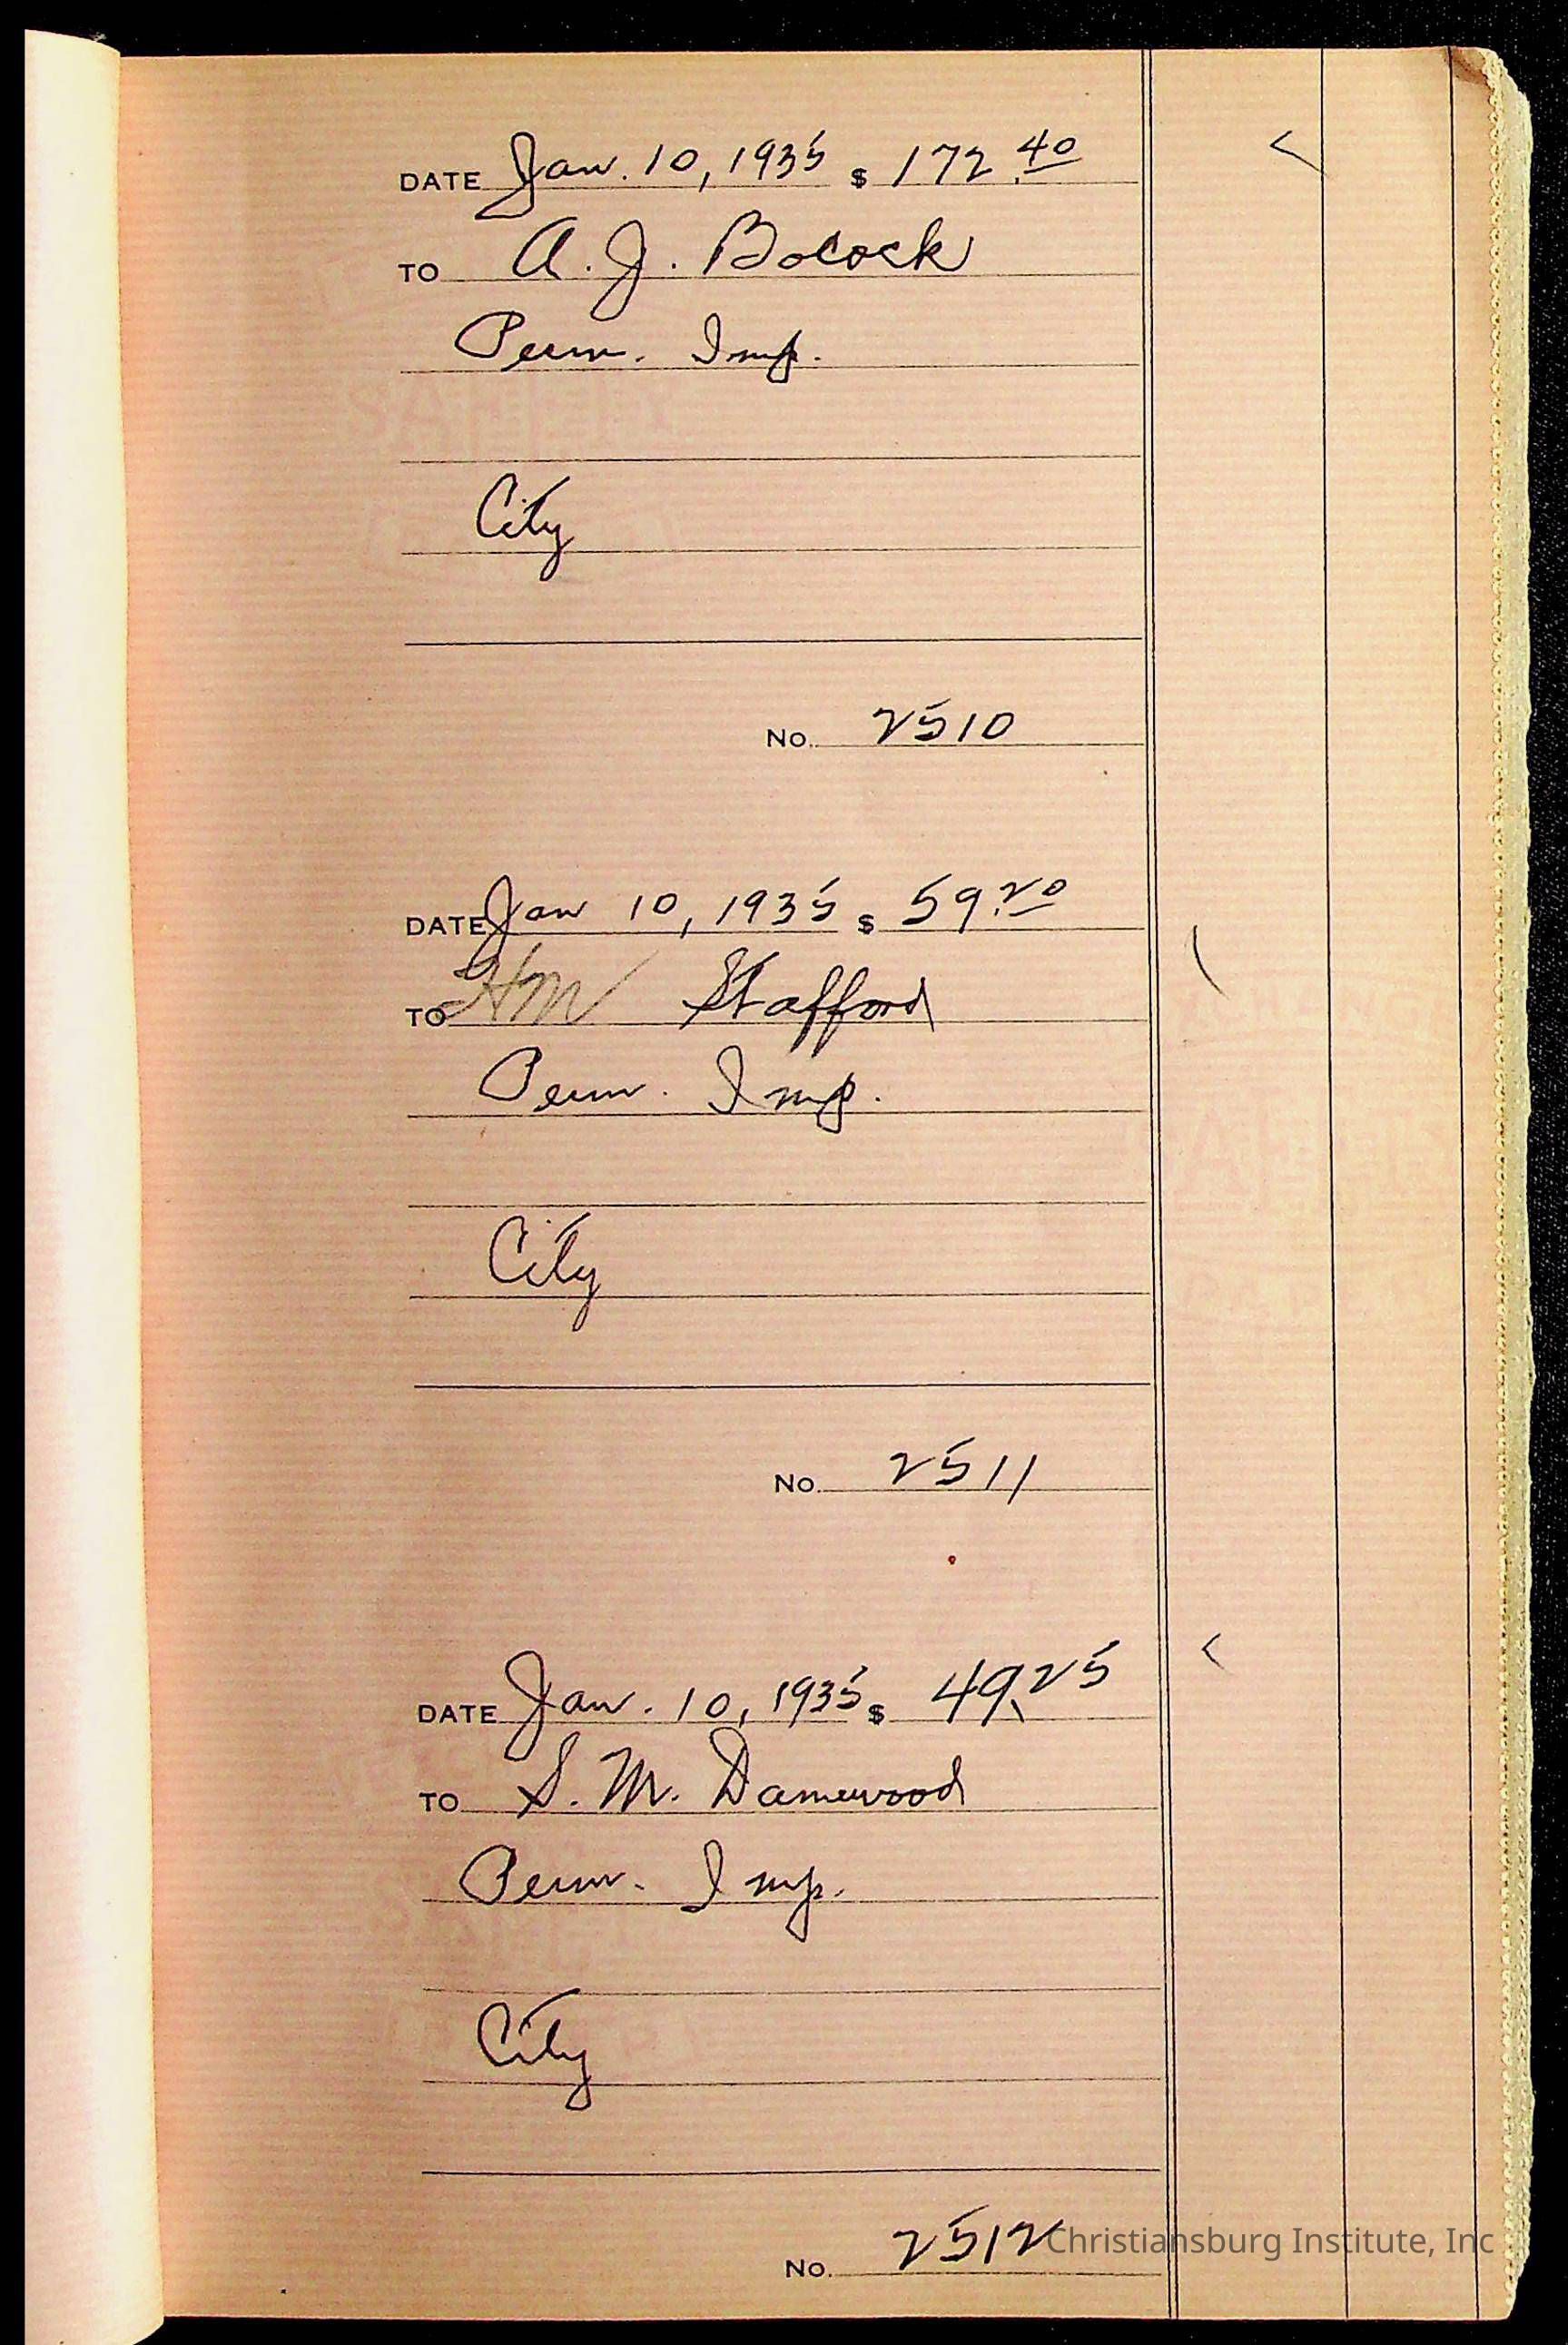 DATE Jan. 10, 1935 $ 172.40
TO A. J. Bocock
Perm. Imp.
City
No. 2510
DATE Jan 10, 1935 $ 59.20
TO HM Stafford
Perm. Imp.
City
No. 2511
DATE Jan. 10, 1935 $ 49.25
TO S. M. Damewood
Perm. Imp.
City
No. 2512
Christiansburg Institute, Inc